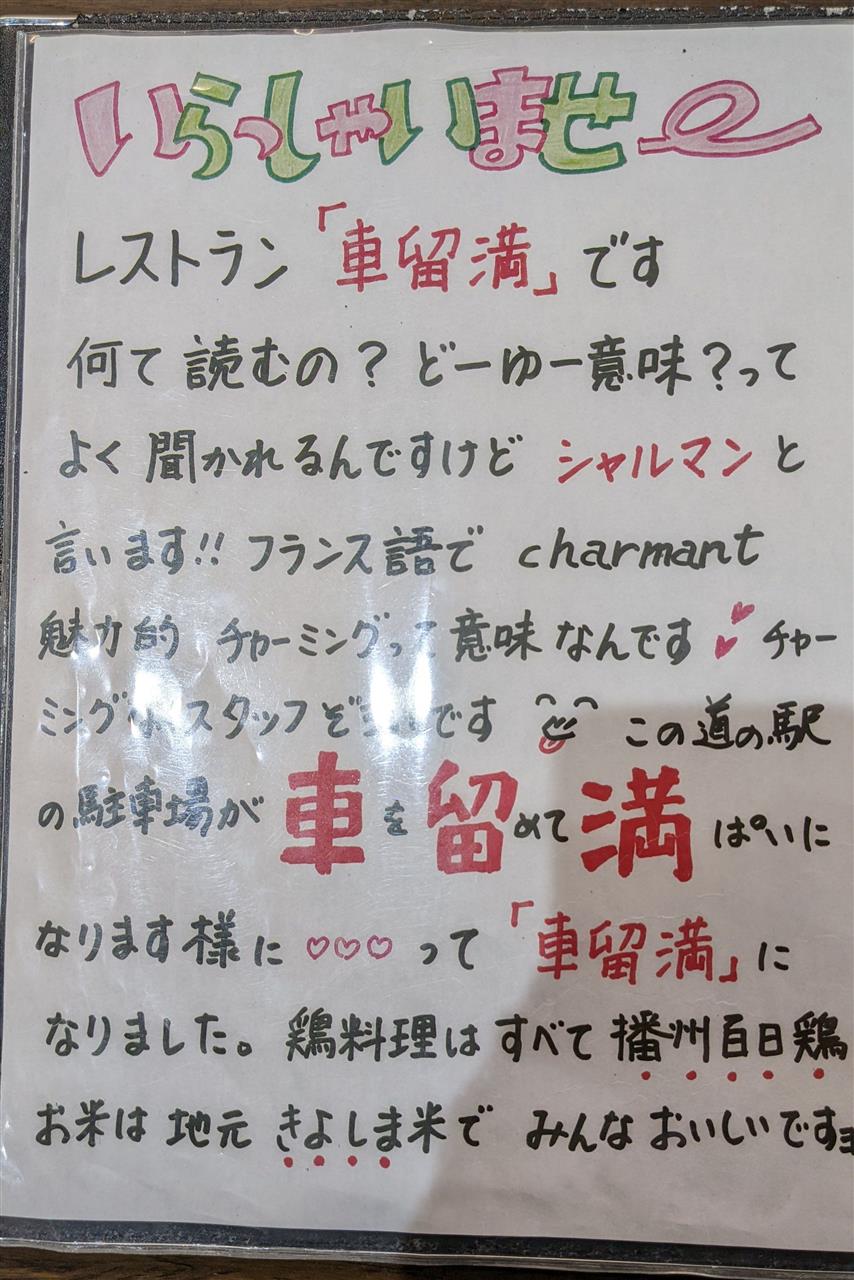 いらっしゃいませ〜
レストラン「車留満」です
何て読むの?どーゆー意味?って
よく聞かれるんですけどシャルマンと
言います!!フランス語で charmant
魅力的 チャーミングって意味なんです チャー
ミングなスタッフぞろいです この道の駅
の駐車場が車を留めて満ぱいに
なります様に♡♡♡って「車留満」に
なりました。鶏料理はすべて播州百日鶏
お米は地元きよしま米でみんなおいしいですョ